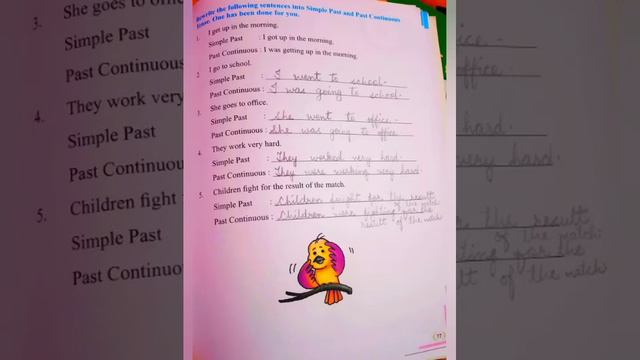 Rewrite the following sentences into Simple Past and Past Continuous
Tense. One has been done for you.
1. I get up in the morning.
Simple Past : I got up in the morning.
Past Continuous : I was getting up in the morning.
2. I go to school.
Simple Past : I went to school.
Past Continuous : I was going to school.
3. She goes to office.
Simple Past : She went to office.
Past Continuous : She was going to office
4. They work very hard.
Simple Past : They worked very hard.
Past Continuous : They were working very hard.
5. Children fight for the result of the match.
Simple Past : Children fought for the result
of the match.
Past Continuous : Children were fighting for the
result of the match
77
3. She goes to offi
Simple Past
Past Continuous
4. They work very
Simple Past
Past Continuou
5. Children fight
Simple Past
Past Continuo
office.
office
hard.
very hard.
the result
of the match.
ting for the
of the match